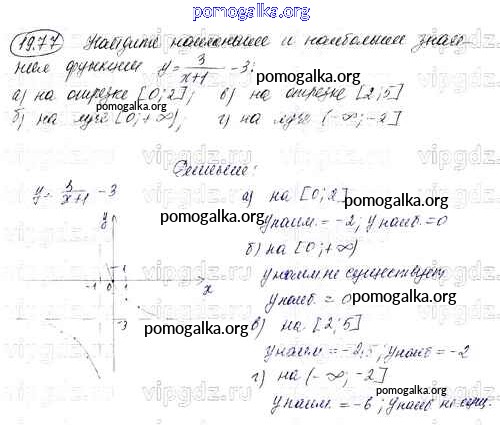 pomogalka.org
19.77 Найдите наименьшее и наибольшее значе-
ния функции y = 3/(x+1) - 3:
а) на отрезке [0; 2]; в) на отрезке [2; 5]
pomogalka.org
б) на луче [0; +∞); г) на луче (-∞; -2]
Решение:
y = 3/(x+1) - 3
а) на [0; 2]
pomogalka.org
y
yнаим. = -2; yнаиб. = 0
pomogalka.org
б) на [0; +∞)
1
yнаим не существует
-1 0 1 x
pomogalka.org
yнаиб. = 0
-3
pomogalka.org
в) на [2; 5]
yнаим = -2,5; yнаиб = -2
г) на (-∞; -2]
pomogalka.org
yнаим. = -6; yнаиб не сущ.
vipgdz.ru